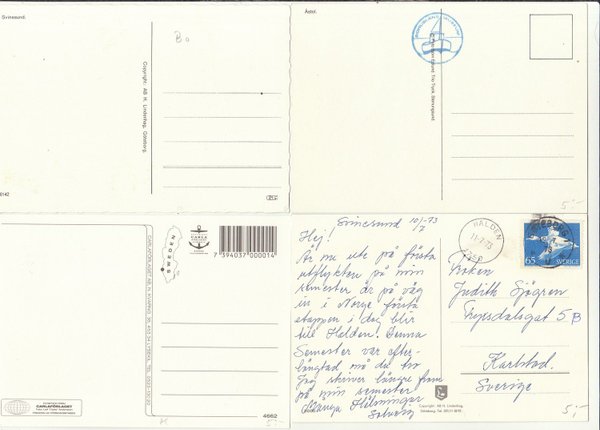 Svinesund.
Copyright: AB H. Linderhag, Göteborg.
Bo
Åstol.
5:-
SWEDEN
7 394037 000014
CARLAFÖRLAGET
4662
5:-
Svinesund 10/7-73
Hej!
Är nu ute på första
utflykten på min
semester är på väg
in i Norge första
etappen i dag blir
till Halden! Denna
Semester var efter-
längtad må du tro
Jag skriver längre fram
på min semester.
Många Hälsningar
Solveig
Copyright: AB H. Linderhag,
HALDEN
65 SVERIGE
Fröken
Judith Sjögren
5 B
Karlstad.
Sverige
5:-